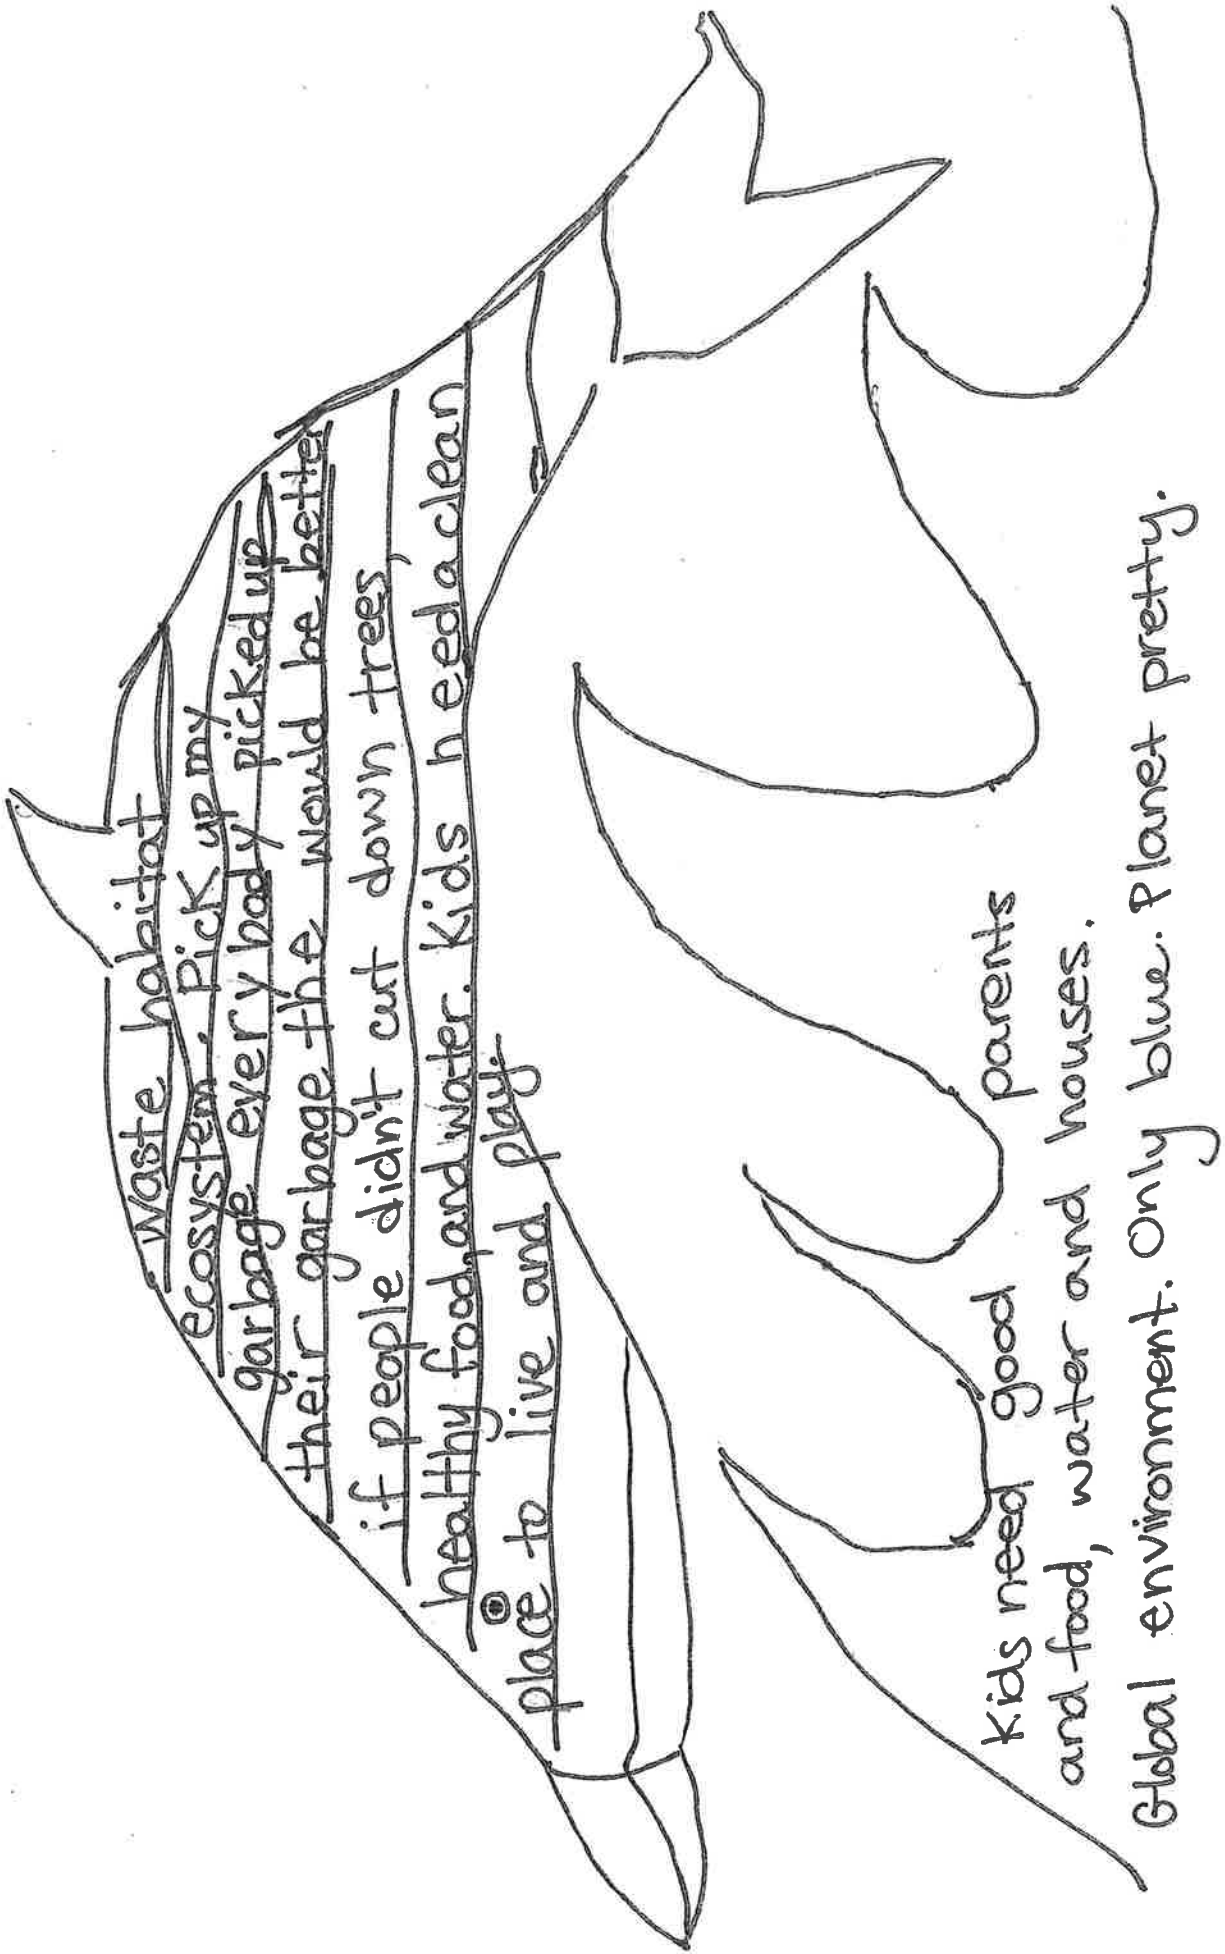 Waste habitat
ecosystem. Pick up my
garbage every body picked up
their garbage the would be better
if people didn't cut down trees,
healthy food, and water. Kids need a clean
place to live and play.
Kids need good parents
and food, water and houses.
Global environment. Only blue. Planet pretty.